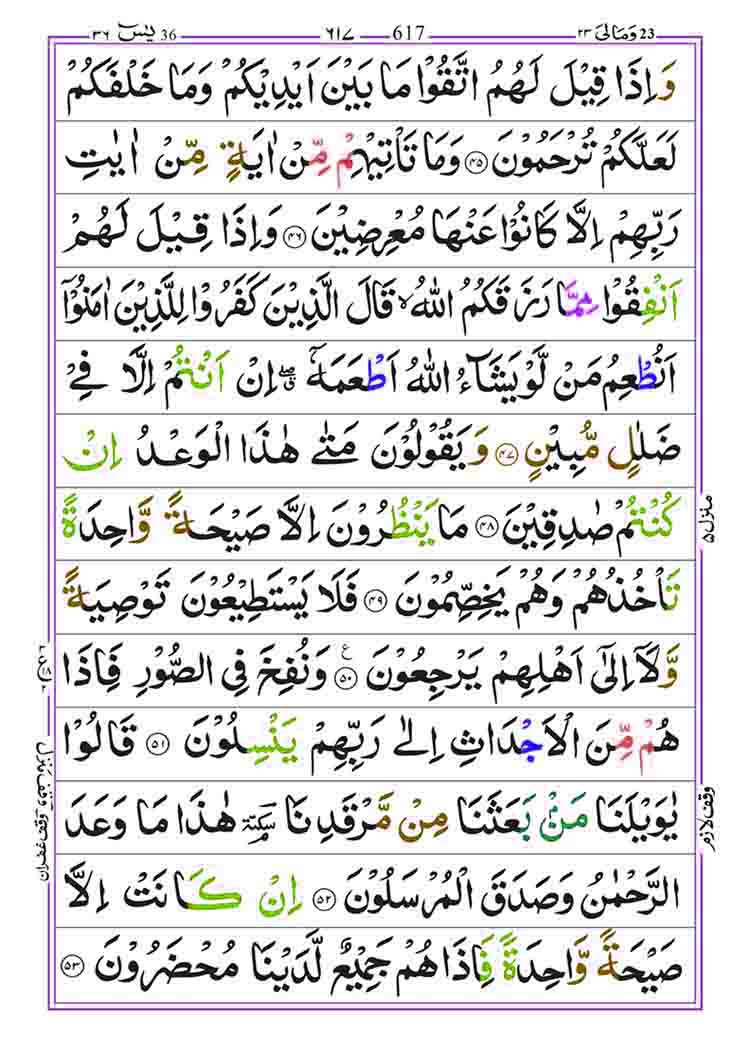 23 وَمَالِیَ ۲۳ 617 ٦١٧ 36 یٰسٓ ۳۶
وَاِذَا قِيْلَ لَهُمُ اتَّقُوْا مَا بَيْنَ اَيْدِيْكُمْ وَمَا خَلْفَكُمْ
لَعَلَّكُمْ تُرْحَمُوْنَ ۴۵ وَمَا تَاْتِيْهِمْ مِّنْ اٰيَةٍ مِّنْ اٰيٰتِ
رَبِّهِمْ اِلَّا كَانُوْا عَنْهَا مُعْرِضِيْنَ ۴۶ وَاِذَا قِيْلَ لَهُمْ
اَنْفِقُوْا مِمَّا رَزَقَكُمُ اللّٰهُ ۙ قَالَ الَّذِيْنَ كَفَرُوْا لِلَّذِيْنَ اٰمَنُوْۤا
اَنُطْعِمُ مَنْ لَّوْ يَشَآءُ اللّٰهُ اَطْعَمَهٗۤ ۖ اِنْ اَنْتُمْ اِلَّا فِيْ
ضَلٰلٍ مُّبِيْنٍ ۴۷ وَيَقُوْلُوْنَ مَتٰى هٰذَا الْوَعْدُ اِنْ
كُنْتُمْ صٰدِقِيْنَ ۴۸ مَا يَنْظُرُوْنَ اِلَّا صَيْحَةً وَّاحِدَةً
تَاْخُذُهُمْ وَهُمْ يَخِصِّمُوْنَ ۴۹ فَلَا يَسْتَطِيْعُوْنَ تَوْصِيَةً
وَّلَاۤ اِلٰۤى اَهْلِهِمْ يَرْجِعُوْنَ ۵۰ ع وَنُفِخَ فِى الصُّوْرِ فَاِذَا
هُمْ مِّنَ الْاَجْدَاثِ اِلٰى رَبِّهِمْ يَنْسِلُوْنَ ۵۱ قَالُوْا
يٰوَيْلَنَا مَنْۢ بَعَثَنَا مِنْ مَّرْقَدِنَا ۜ سكتة هٰذَا مَا وَعَدَ
الرَّحْمٰنُ وَصَدَقَ الْمُرْسَلُوْنَ ۵۲ اِنْ كَانَتْ اِلَّا
صَيْحَةً وَّاحِدَةً فَاِذَا هُمْ جَمِيْعٌ لَّدَيْنَا مُحْضَرُوْنَ ۵۳
منزل ۵
وقف لازم
وقف غفران